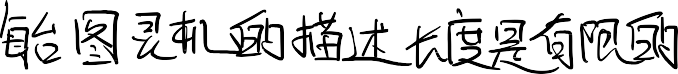 每台图灵机的描述长度是有限的